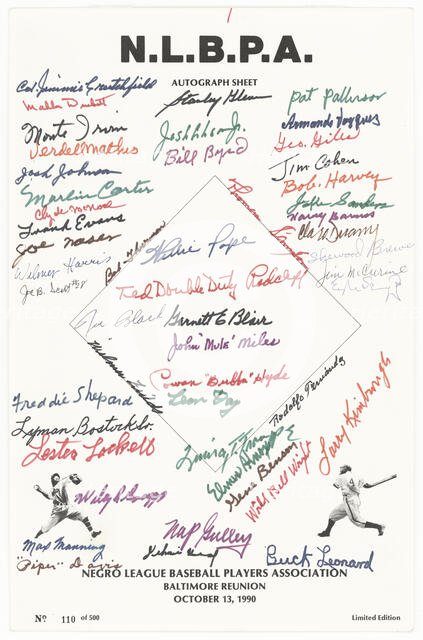 N.L.B.P.A.
AUTOGRAPH SHEET
Col. Jimmie Crutchfield
Stanley Glenn
Pat Patterson
Mahlon Duckett
Armando Vazquez
Monte Irvin
Josh Gibson Jr.
Geo. Giles
Verdel Mathis
Bill Byrd
Jim Cohen
Josh Johnson
Bob. Harvey
Marlin Carter
Jake Sanders
Clyde McNeal
Harry Barnes
Frank Evans
Bob Thurman
Thomas
Joe
Willie Pope
Sherwood Brewer
Wilmer Harris
Jim McCurine
Joe B. Scott
Ted Double Duty Radcliff
Joe Black
Garnett E Blair
John "Mule" Miles
Wilmer Fields
Cowan "Bubba" Hyde
Leon Day
Rodolfo Fernandez
Larry Kimbrough
Freddie Shepard
Lyman Bostock Sr.
Lester Lockett
Gene Benson
Wild Bill Wright
Wiley L Griggs
Nap Gulley
Max Manning
Buck Leonard
"Piper" Davis
NEGRO LEAGUE BASEBALL PLAYERS ASSOCIATION
BALTIMORE REUNION
OCTOBER 13, 1990
Nº 110 of 500
Limited Edition